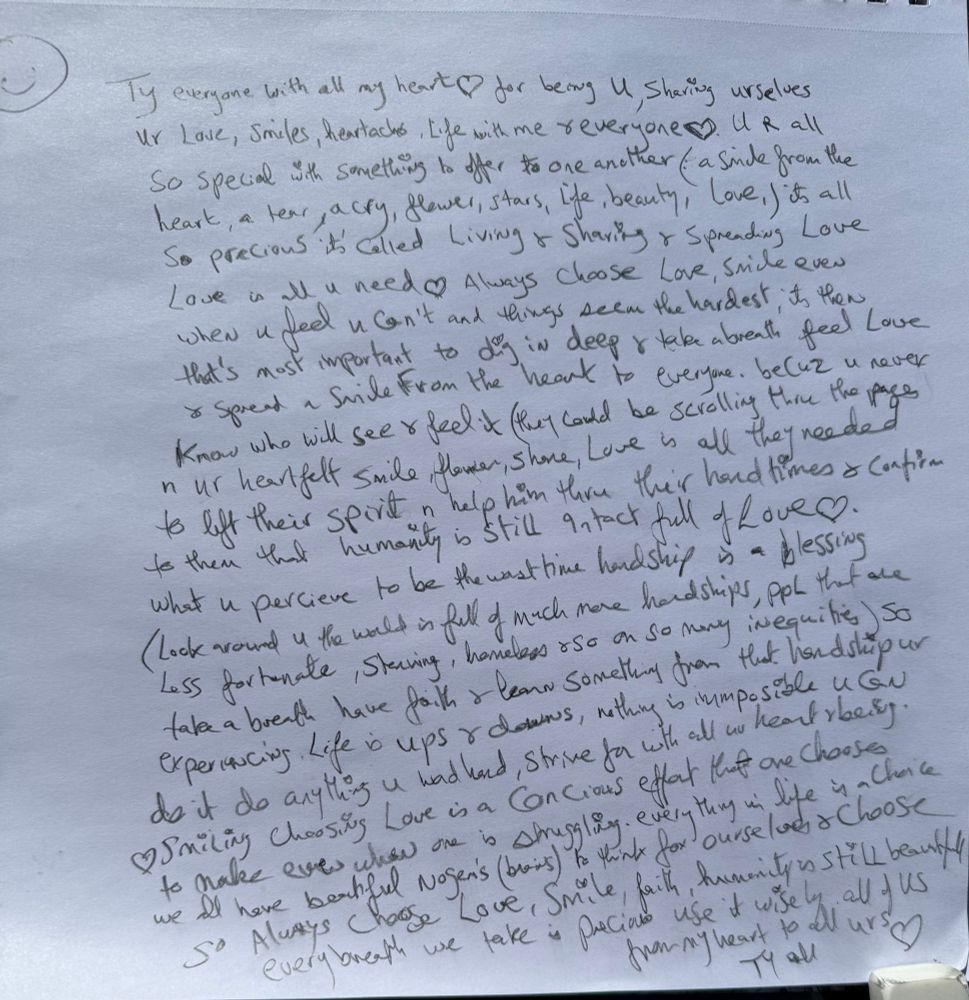 Ty everyone with all my heart♡ for being U, sharing urselves
Ur Love, Smiles, heartachs, Life with me & everyone♡. U R all
So special with something to offer to one another (a smile from the
heart, a tear, a cry, flower, stars, Life, beauty, Love,) its all
So precious it's called Living & Sharing & Spreading Love
Love is all u need♡ Always choose Love, Smile even
when u feel u can't and things seem the hardest, its then
that's most important to dig in deep & take a breath feel Love
& Spread a Smile From the heart to everyone. becuz u never
Know who will see & feel it (they could be scrolling thru the pages
n ur heartfelt Smile, flower, Love is all they needed
to lift their spirit n help him thru their hard times & Confirm
to them that humanity is still intact full of Love♡.
what u percieve to be the time hardship is a blessing
(Look around u the world is full of much more hardships, ppl that are
Less fortunate, Starving, homeless & so on so many inequities) So
take a breath have faith & learn something from that hardship ur
experiencing. Life is ups & downs, nothing is immposible u can
do it do anything u hard, Strive for with all ur heart & being.
♡Smiling choosing Love is a Concious effort that one chooses
to make even when one is struggling. everything in life is a choice
we all have beautiful Nogen's (brains) to think for ourselves & Choose
So Always Choose Love, Smile, faith, humanity is still beautiful
every breath we take is precious use it wisely all of us
from my heart to all urs♡
Ty all